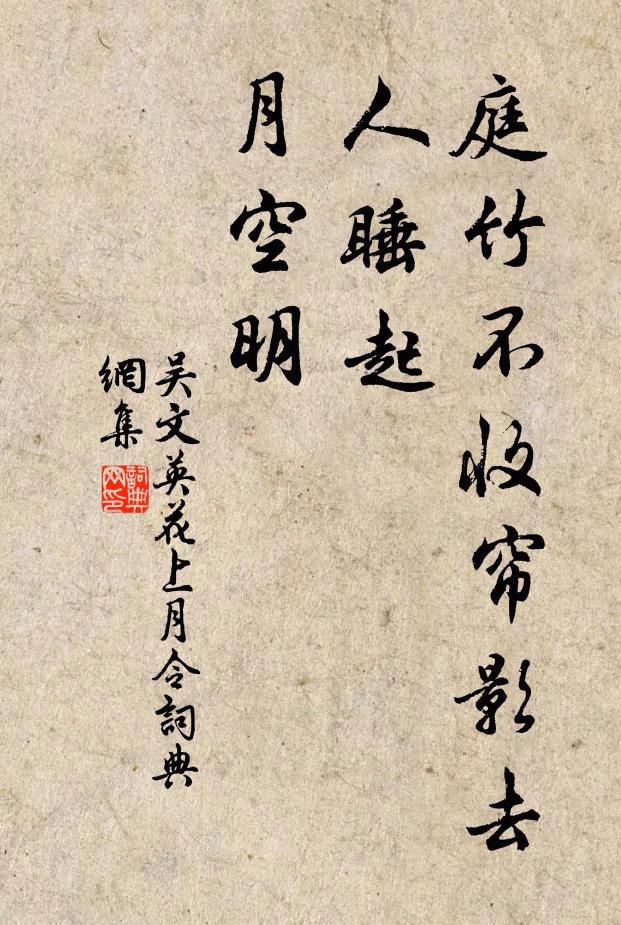 庭竹不收帘影去
人睡起
月空明
吴文英花上月令詞典
網集
詞典
网印